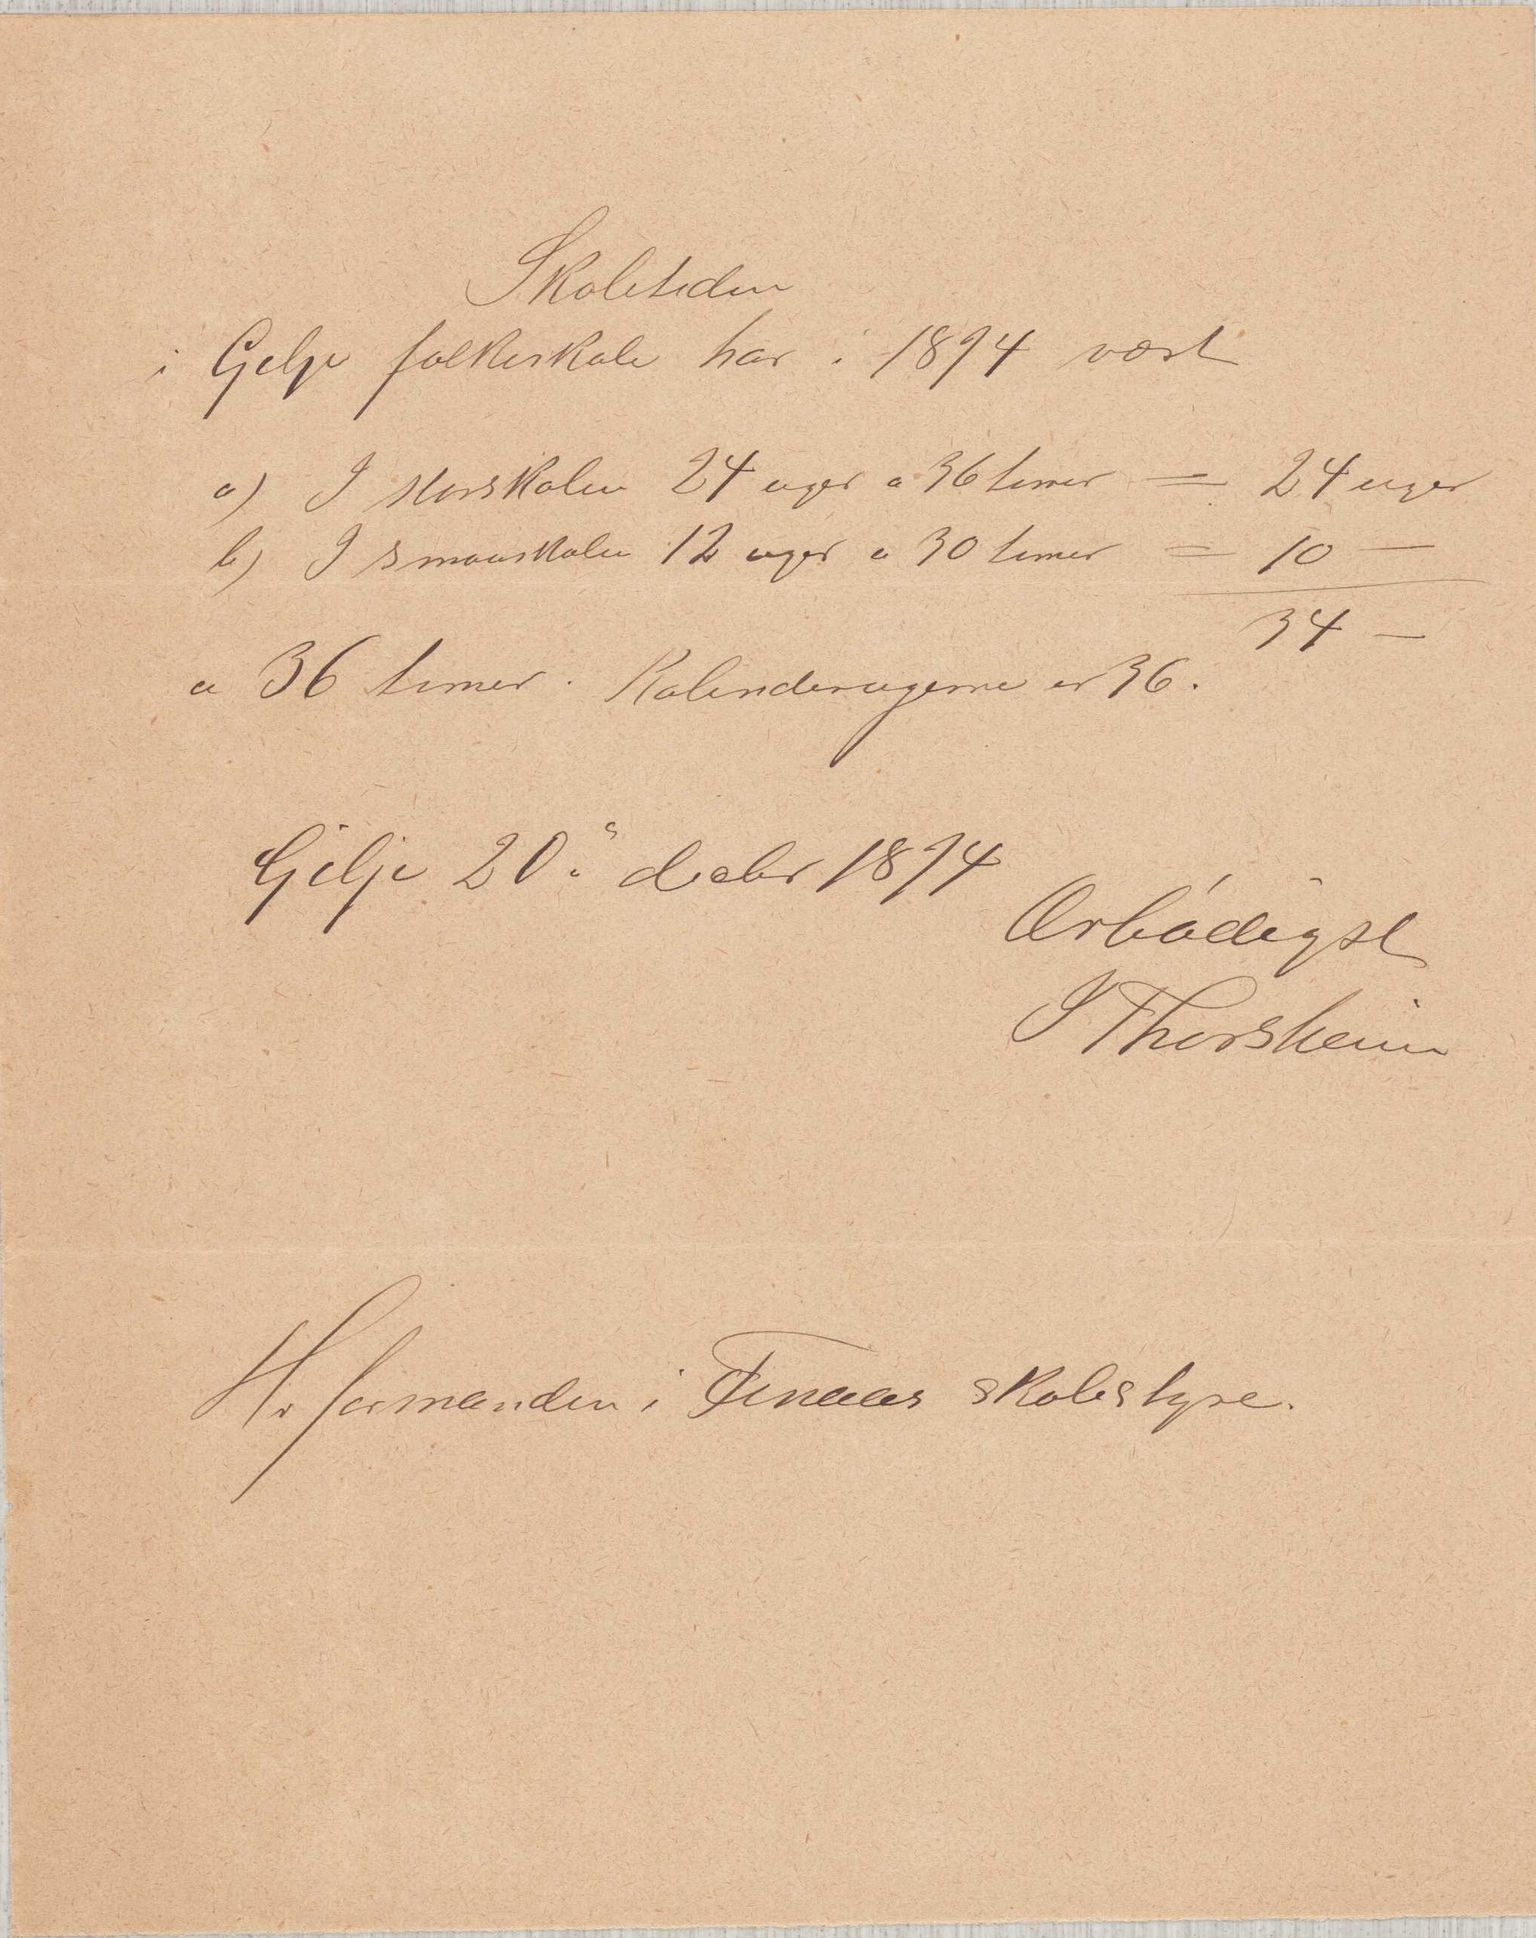 Skoletiden
i Gilje folkeskole har i 1894 vært
a) I storskolen 24 uger a 36 timer = 24 uger
b) I smaaskolen 12 uger a 30 timer = 10 —
34 —
a 36 timer. Kalenderugerne er 36.
Gilje 20. decbr 1894
Ærbødigst
J Thorsheim
Hr formanden i Finaas skolestyre.